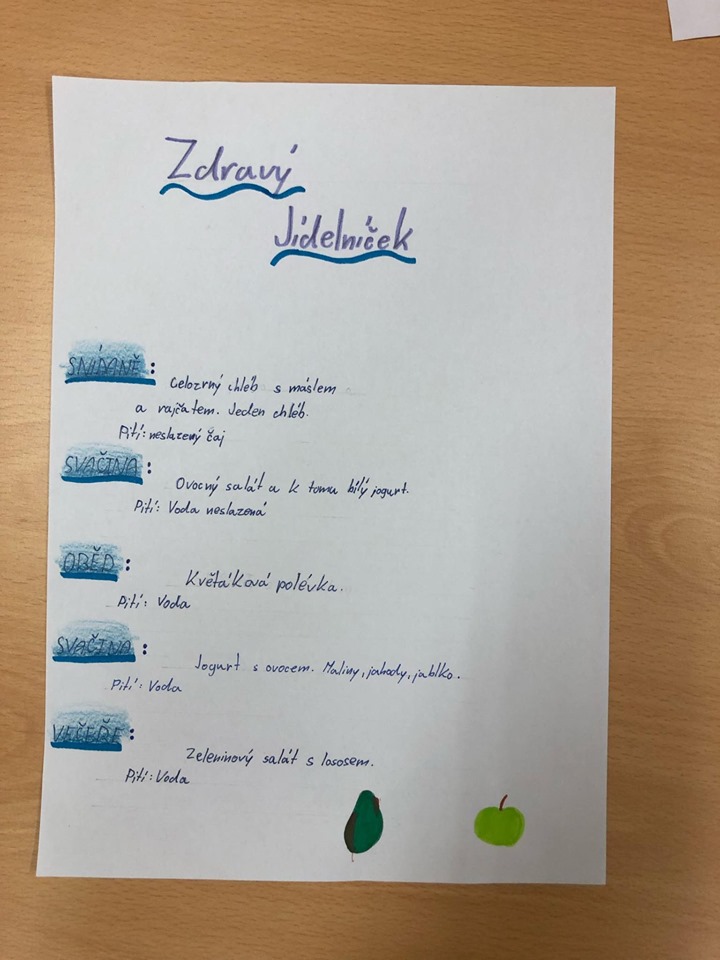 Zdravý
Jídelníček
SNÍDANĚ:
Celozrný chléb s máslem
a rajčatem. Jeden chléb.
Pití: neslazený čaj
SVAČINA:
Ovocný salát a k tomu bílý jogurt.
Pití: Voda neslazená
OBĚD:
Květáková polévka.
Pití: Voda
SVAČINA:
Jogurt s ovocem. Maliny, jahody, jablko.
Pití: Voda
VEČEŘE:
Zeleninový salát s lososem.
Pití: Voda